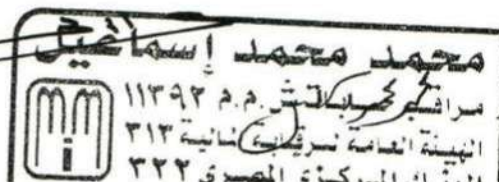 محمد محمد إسماعيل
س.م.م ١١٣٩٢
الهيئة العامة للرقابة المالية ٣١٣
البنك المركزى المصرى ٣٢٢